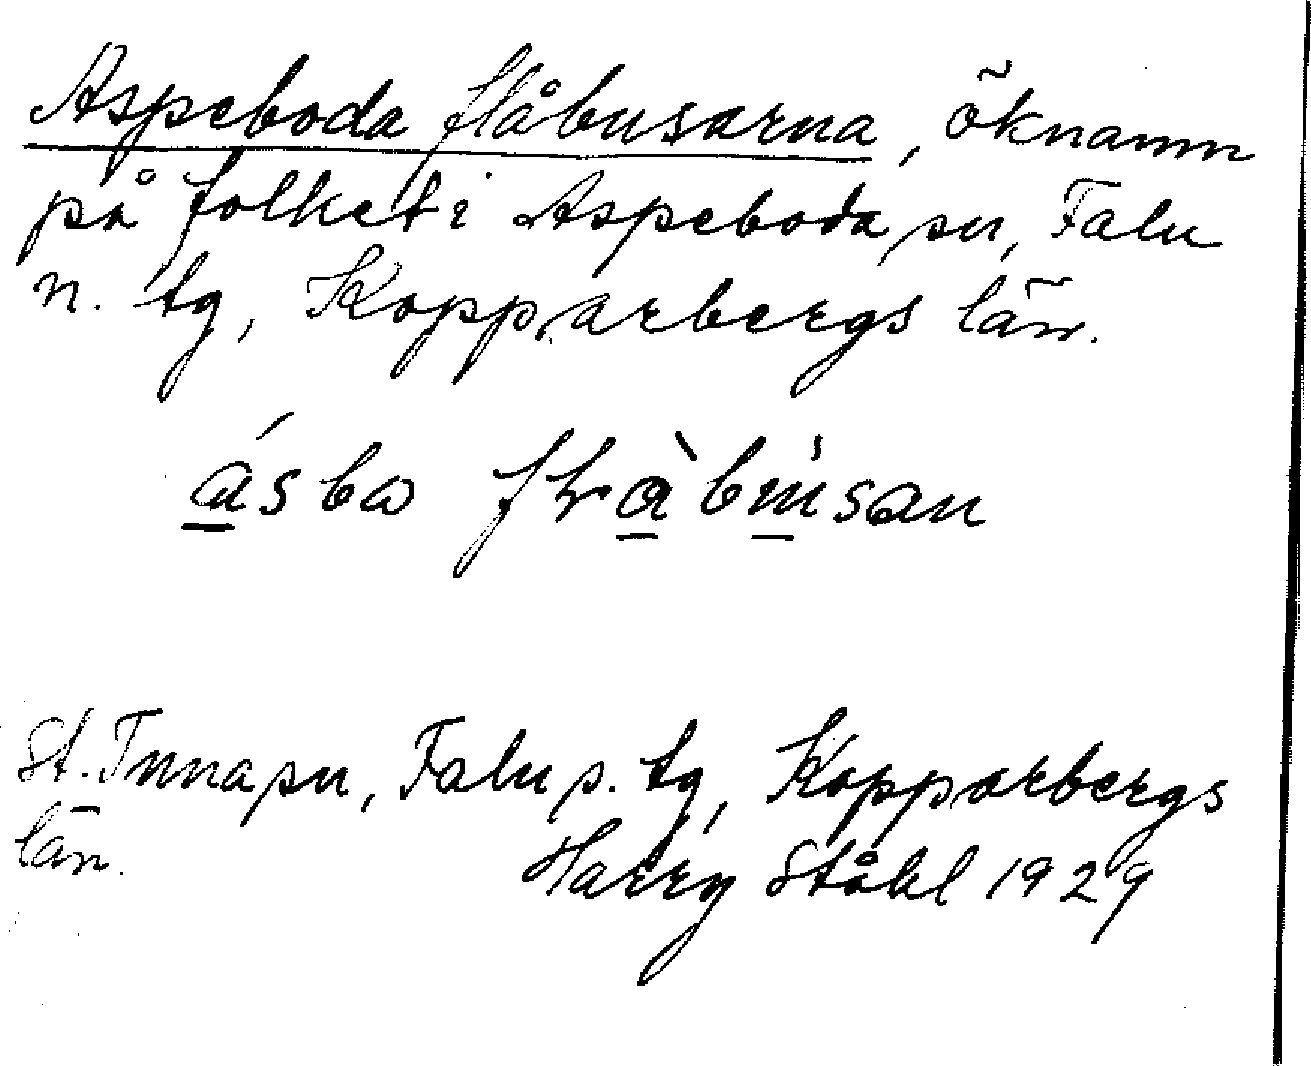 Aspeboda flåbusarna, öknamn
på folket i Aspeboda sn, Falu
n. tg, Kopparbergs län.
St. Tuna sn, Falu s. tg, Kopparbergs
län.
Harry Ståhl 1929